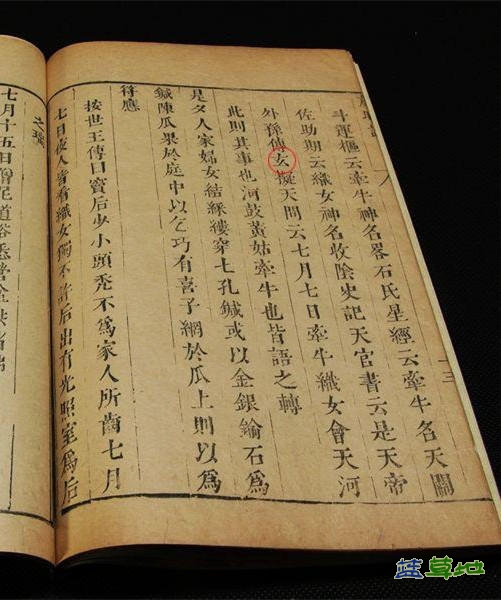 歲時記
十三
斗運樞云牽牛神名畧石氏星經云牽牛名天關
佐助期云織女神名收陰史記天官書云是天帝
外孫傅玄擬天問云七月七日牽牛織女會天河
此則其事也河鼓黃姑牽牛也皆語之轉
是夕人家婦女結綵縷穿七孔鍼或以金銀鍮石爲
鍼陳瓜果於庭中以乞巧有喜子網於瓜上則以爲
符應
按世王傳曰竇后少小頭禿不爲家人所齒七月
七日夜人皆看織女獨不許后出有光照室爲后
之瑞
七月十五日僧尼道俗悉營盆供
蓝草地